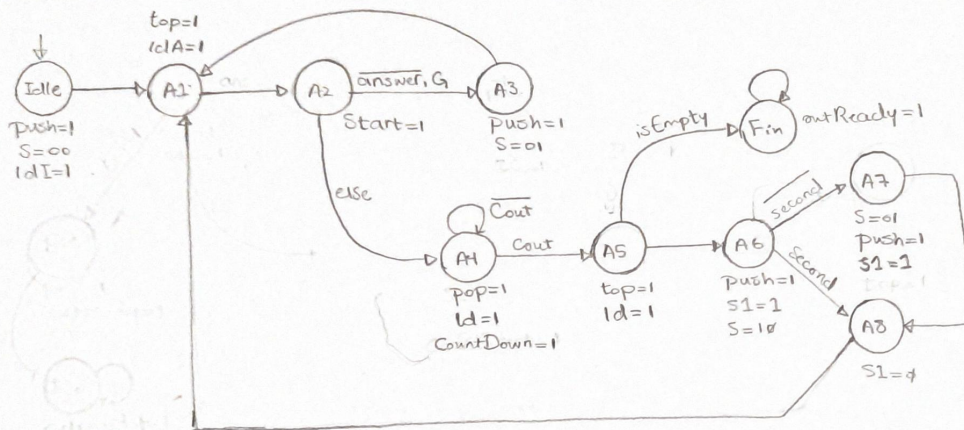 top=1
ldA=1
Idle
push=1
S=00
ldI=1
A1
A2
Start=1
answer, G
A3
push=1
S=01
else
A4
Cout
pop=1
ld=1
CountDown=1
Cout
A5
top=1
ld=1
isEmpty
Fin
outReady=1
A6
push=1
S1=1
S=10
second
A7
S=01
push=1
S1=1
second
A8
S1=0